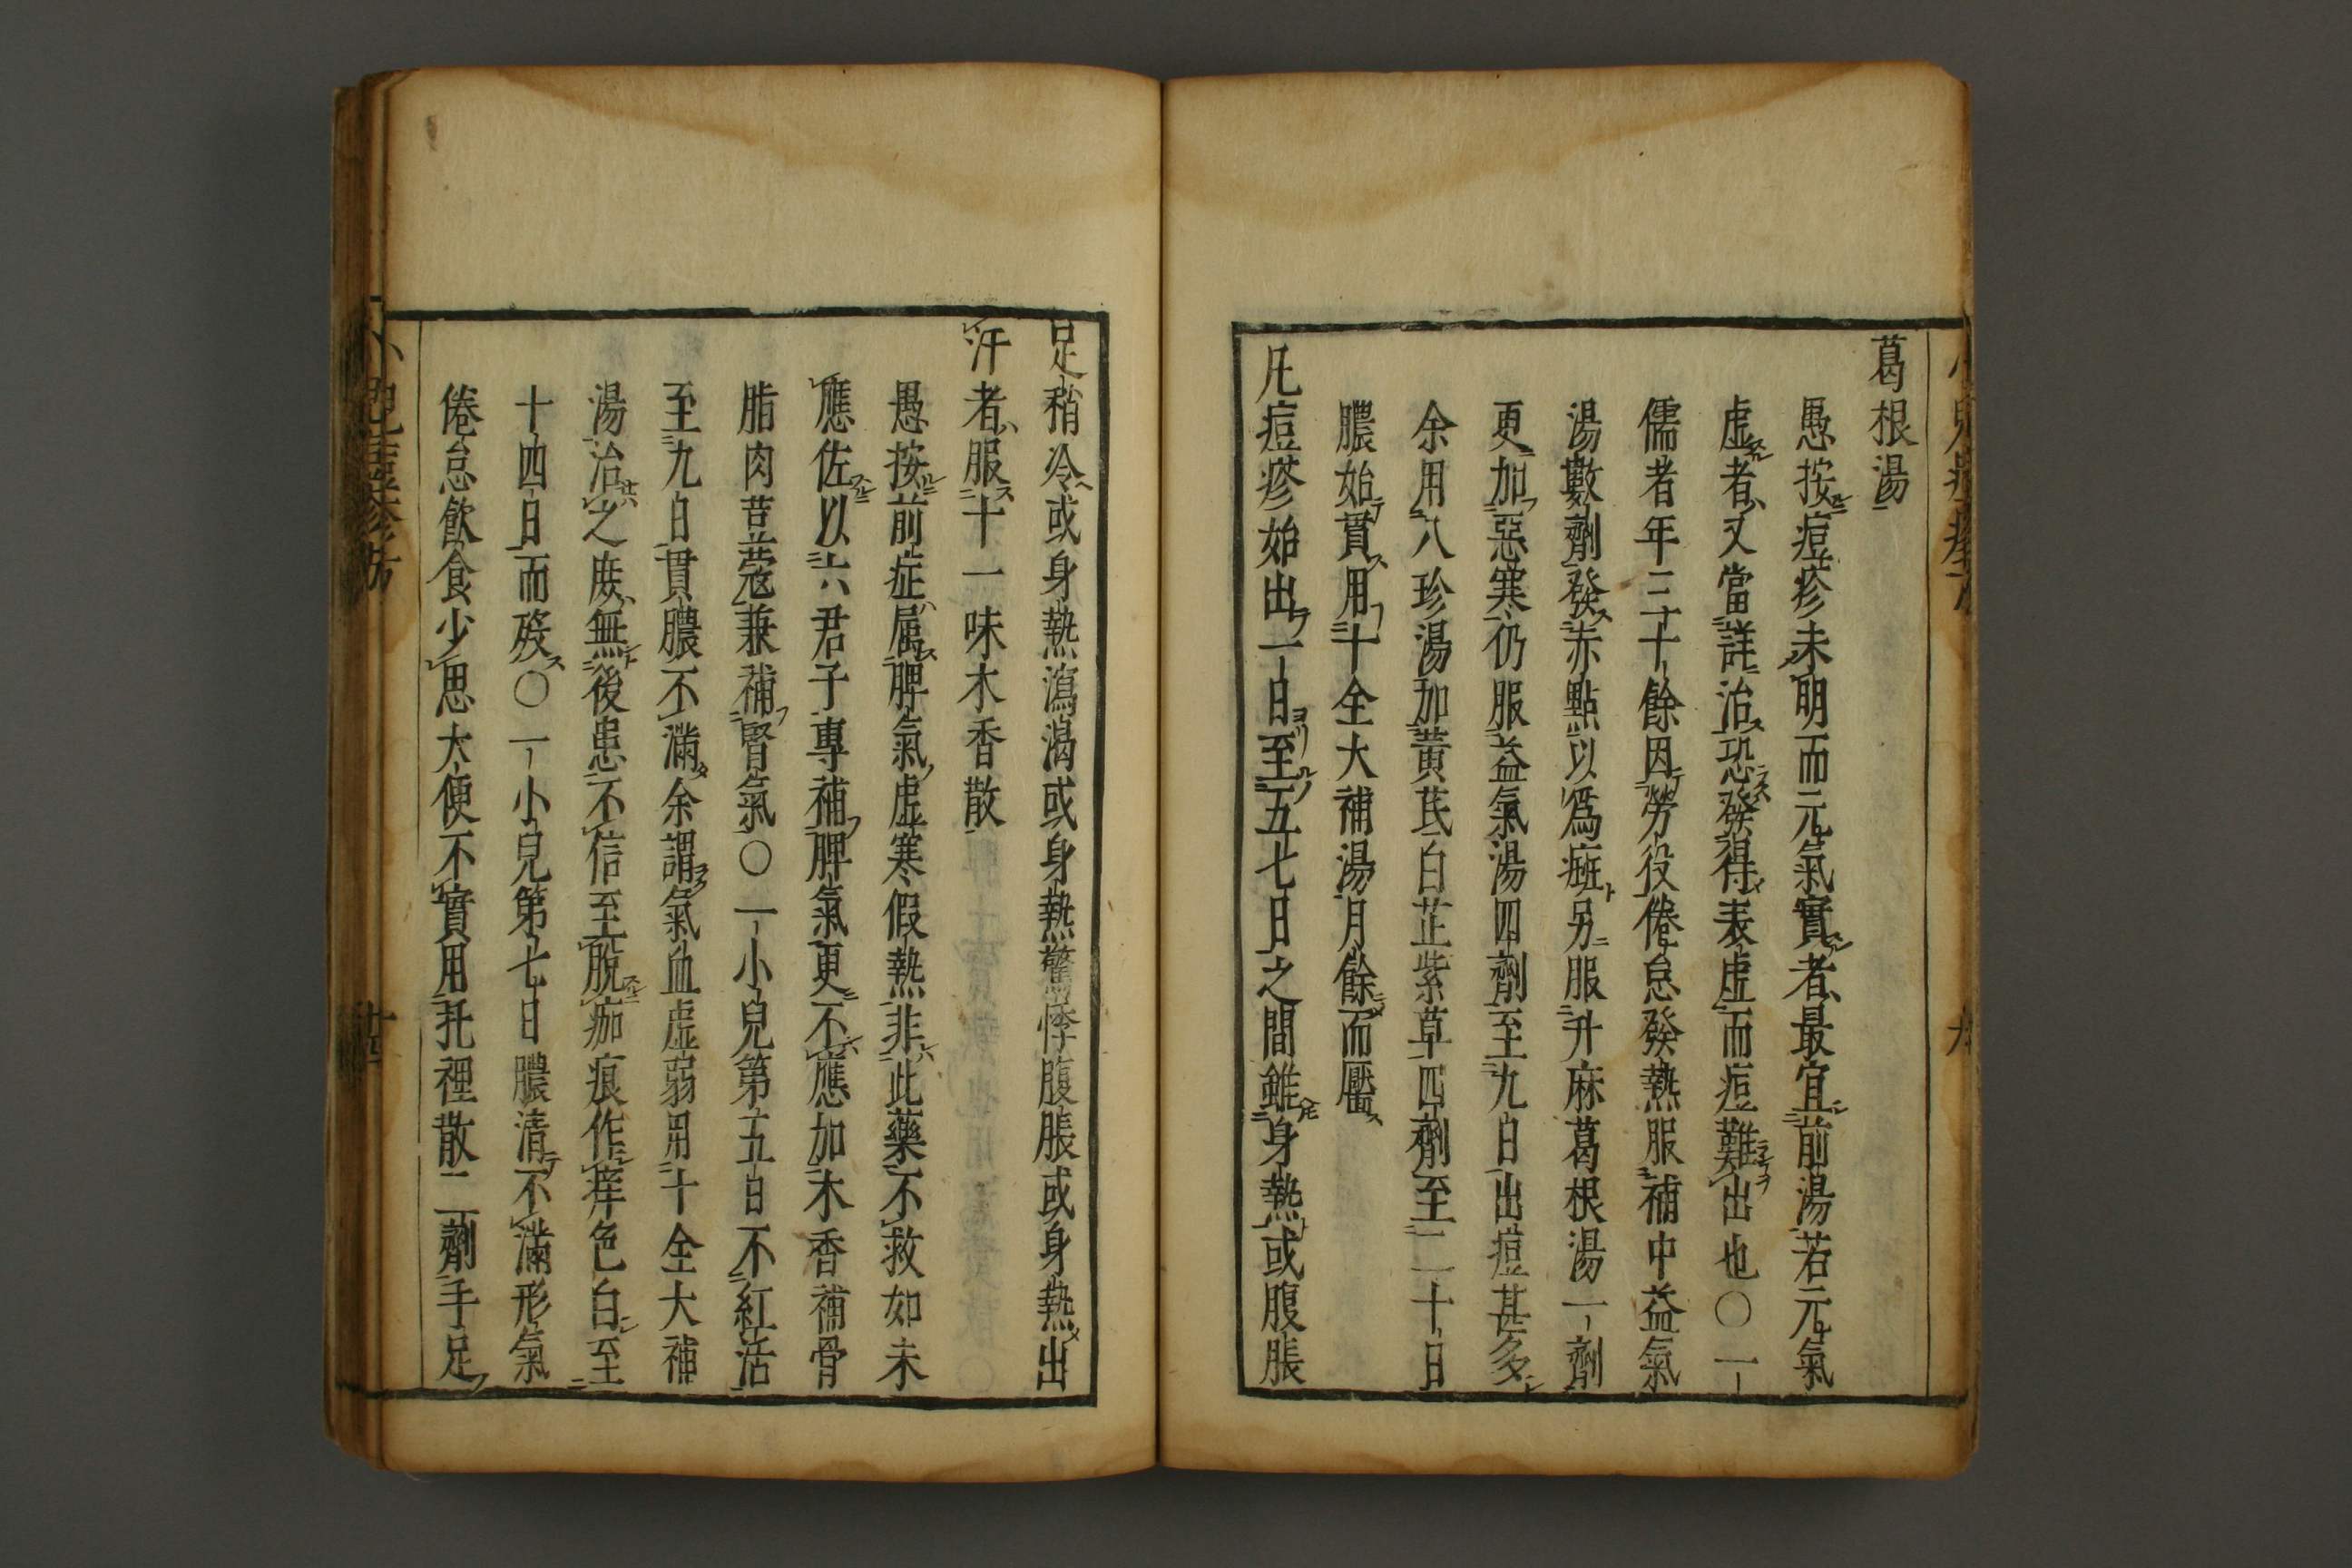 葛根湯
愚按痘疹未明而元氣實者最宜前湯若元氣
虛者又當詳治恐發得表虛而痘難出也〇一
儒者年三十餘因勞役倦怠發熱服補中益氣
湯數劑發赤點以爲癍另服升麻葛根湯一劑
更加惡寒仍服益氣湯四劑至九日出痘甚多
余用八珍湯加黃芪白芷紫草四劑至二十日
膿始貫用十全大補湯月餘而靨
凡痘疹始出一日至五七日之間雖身熱或腹脹
足稍冷或身熱瀉渴或身熱驚悸腹脹或身熱出
汗者服十一味木香散
愚按前症属脾氣虛寒假熱非此藥不救如未
應佐以六君子專補脾氣更不應加木香補骨
脂肉荳蔻兼補腎氣〇一小兒第五日不紅活
至九日貫膿不滿余謂氣血虛弱用十全大補
湯治之庻無後患不信至脫痂痕作痒色白至
十四日而殁〇一小兒第七日膿清不滿形氣
倦怠飲食少思大便不實用托裡散二劑手足